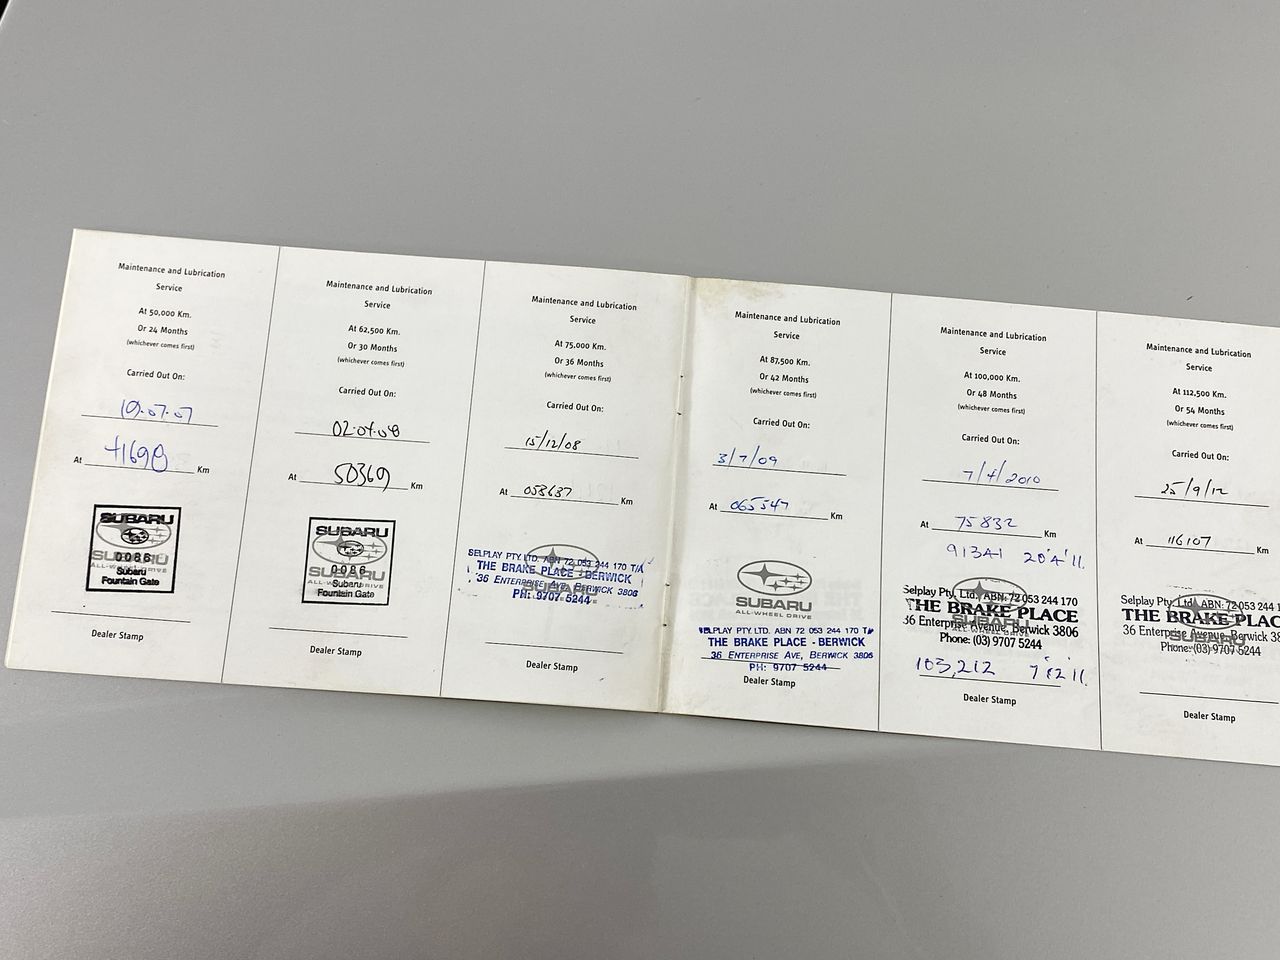 Maintenance and Lubrication
Service
At 50,000 Km.
Or 24 Months
(whichever comes first)
Carried Out On:
19.07.07
At 41698 Km
SUBARU
0086
Subaru
Fountain Gate
ALL-WHEEL DRIVE
Dealer Stamp
Maintenance and Lubrication
Service
At 62,500 Km.
Or 30 Months
(whichever comes first)
Carried Out On:
At 50369 Km
SUBARU
0086
Subaru
Fountain Gate
ALL-WHEEL DRIVE
Dealer Stamp
Maintenance and Lubrication
Service
At 75,000 Km.
Or 36 Months
(whichever comes first)
Carried Out On:
15/12/08
At 058637 Km
SELPLAY PTY. LTD. ABN 72 053 244 170 T/A
THE BRAKE PLACE - BERWICK
36 ENTERPRISE AVE, BERWICK 3806
PH: 9707 5244
Dealer Stamp
Maintenance and Lubrication
Service
At 87,500 Km.
Or 42 Months
(whichever comes first)
Carried Out On:
3/7/09
At 065547 Km
SUBARU
ALL-WHEEL DRIVE
SELPLAY PTY. LTD. ABN 72 053 244 170 T/A
THE BRAKE PLACE - BERWICK
36 ENTERPRISE AVE, BERWICK 3806
PH: 9707 5244
Dealer Stamp
Maintenance and Lubrication
Service
At 100,000 Km.
Or 48 Months
(whichever comes first)
Carried Out On:
7/4/2010
At 75832 Km
91341 20'4'11.
Selplay Pty. Ltd. ABN: 72 053 244 170
THE BRAKE PLACE
36 Enterprise Avenue, Berwick 3806
Phone: (03) 9707 5244
103,212 7'12'11.
Dealer Stamp
Maintenance and Lubrication
Service
At 112,500 Km.
Or 54 Months
(whichever comes first)
Carried Out On:
25/9/12
At 116107 Km
Selplay Pty. Ltd. ABN: 72 053 244 1
THE BRAKE PLAC
36 Enterprise Avenue, Berwick 38
Phone: (03) 9707 5244
Dealer Stamp